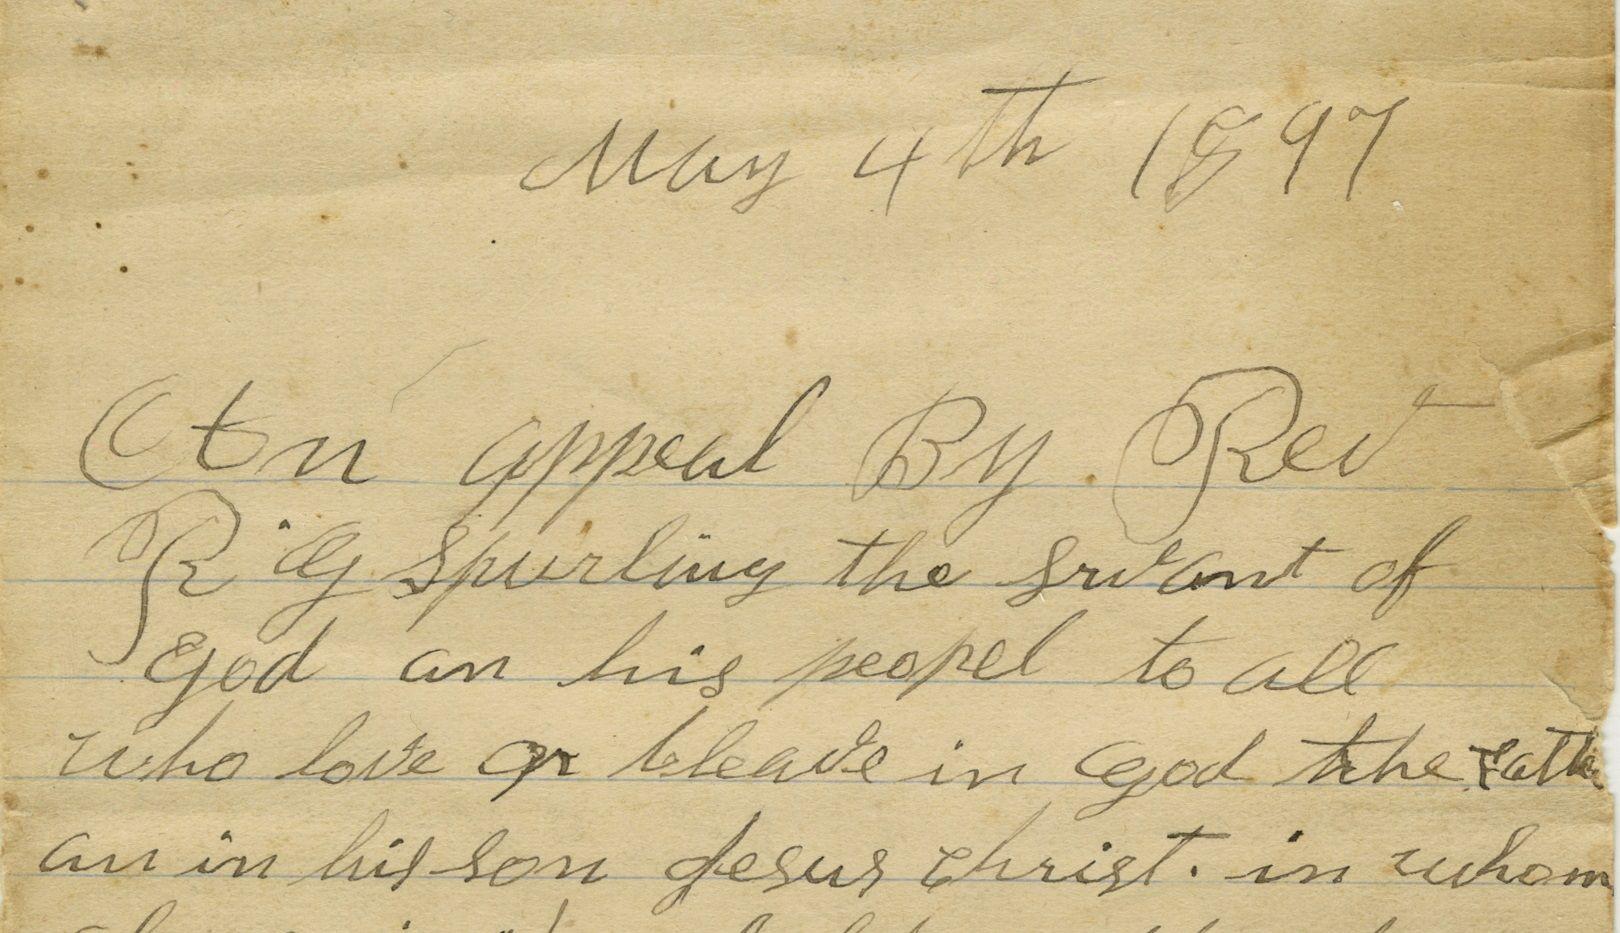 May 4th 1897
An appeal By Rev
R. G Spurling the srvant of
God an his peopel to all
who love or beleave in God the Fathe
an in his son Jesus christ. in whom